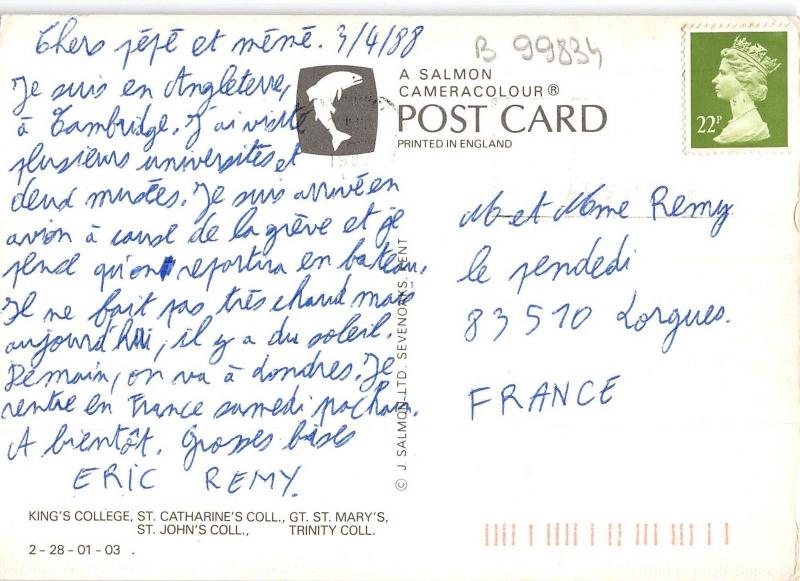 Chers pépé et mémé. 3/4/88
Je suis en Angleterre,
à Cambridge. J'ai visité
plusieurs universités et
deux musées. Je suis arrivé en
avion à cause de la grève et je
pense qu'on repartira en bateau.
Il ne fait pas très chaud mais
aujourd'hui, il y a du soleil.
Demain, on va à Londres. Je
rentre en France samedi prochain.
A bientôt. Grosses bises
ERIC REMY.
KING'S COLLEGE, ST. CATHARINE'S COLL., GT. ST. MARY'S,
ST. JOHN'S COLL., TRINITY COLL.
2-28-01-03 .
B 99834
A SALMON
CAMERACOLOUR ®
POST CARD
PRINTED IN ENGLAND
© J. SALMON LTD. SEVENOAKS, KENT
22P
M et Mme Remy
le pendedi
83510 Lorgues.
FRANCE